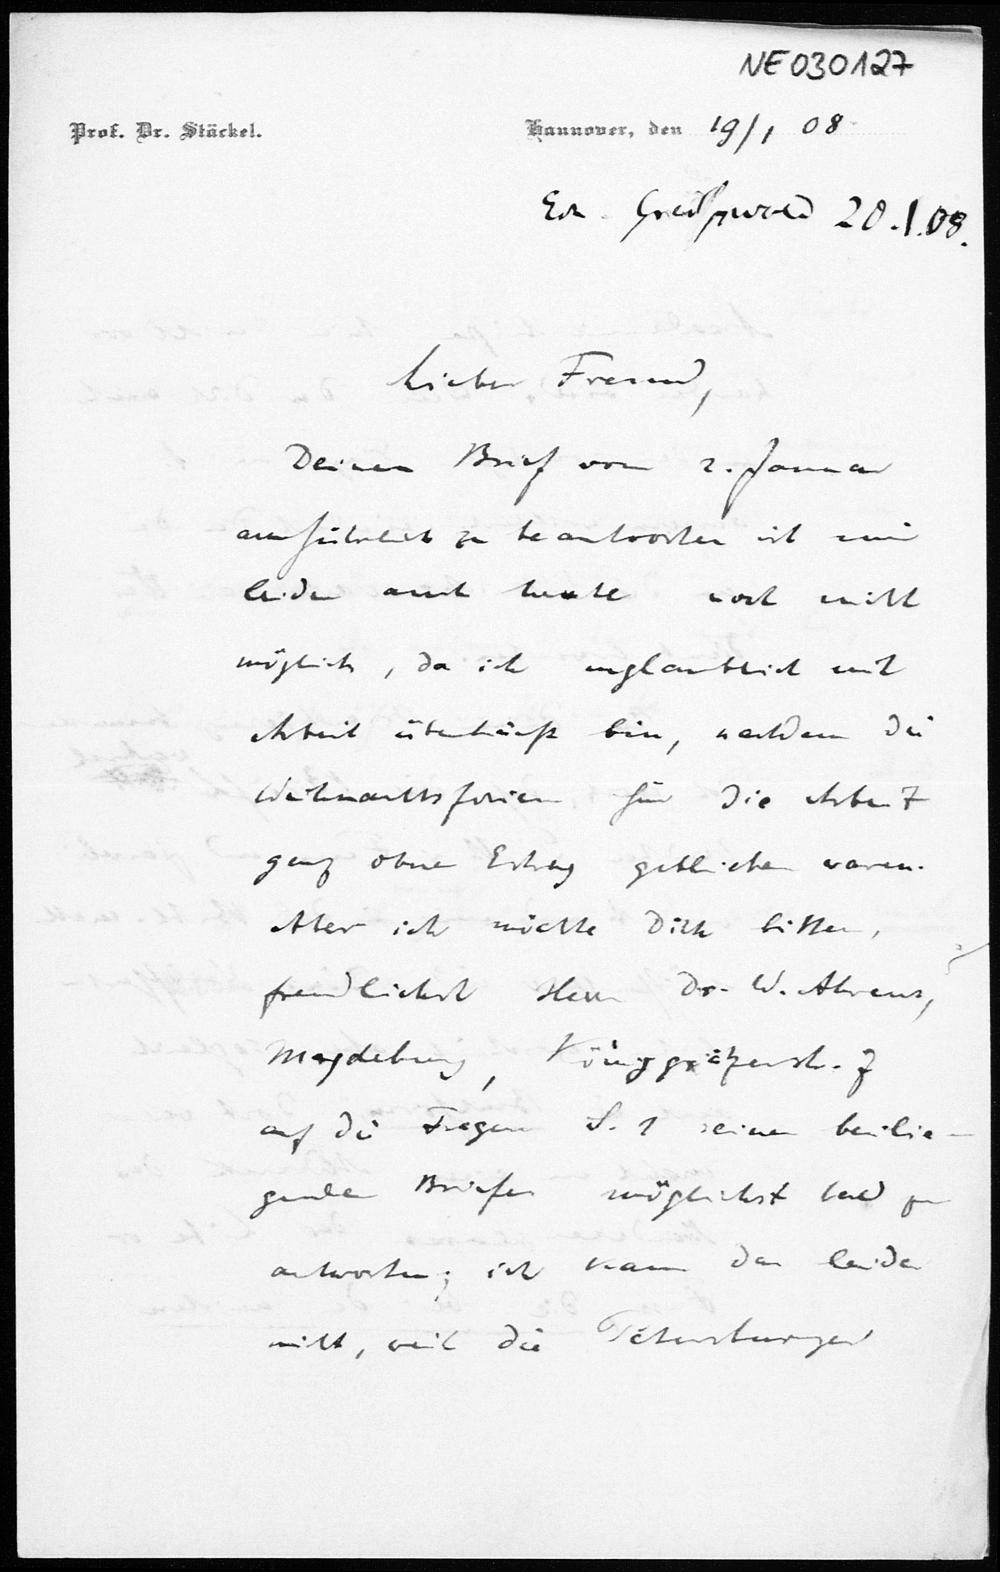 NE030127
Prof. Dr. Stäckel.
Hannover, den 19/1 08
Greifswald 20.1.08.
Lieber Freund,
Deinen Brief vom 2. Januar
ausführlich zu beantworten ist mir
leider auch heute noch nicht
möglich, da ich unglaublich mit
Arbeit überhäuft bin, nachdem die
Weihnachtsferien für die Arbeit
ganz ohne Ertrag geblieben waren.
Aber ich möchte Dich bitten,
freundlichst Herrn Dr. W. Ahrens,
Magdeburg, Königgrätzerstr. 7
auf die Fragen S. 1 seines beilie-
genden Briefes möglichst bald zu
antworten; ich kann das leider
nicht, weil die Petersburger